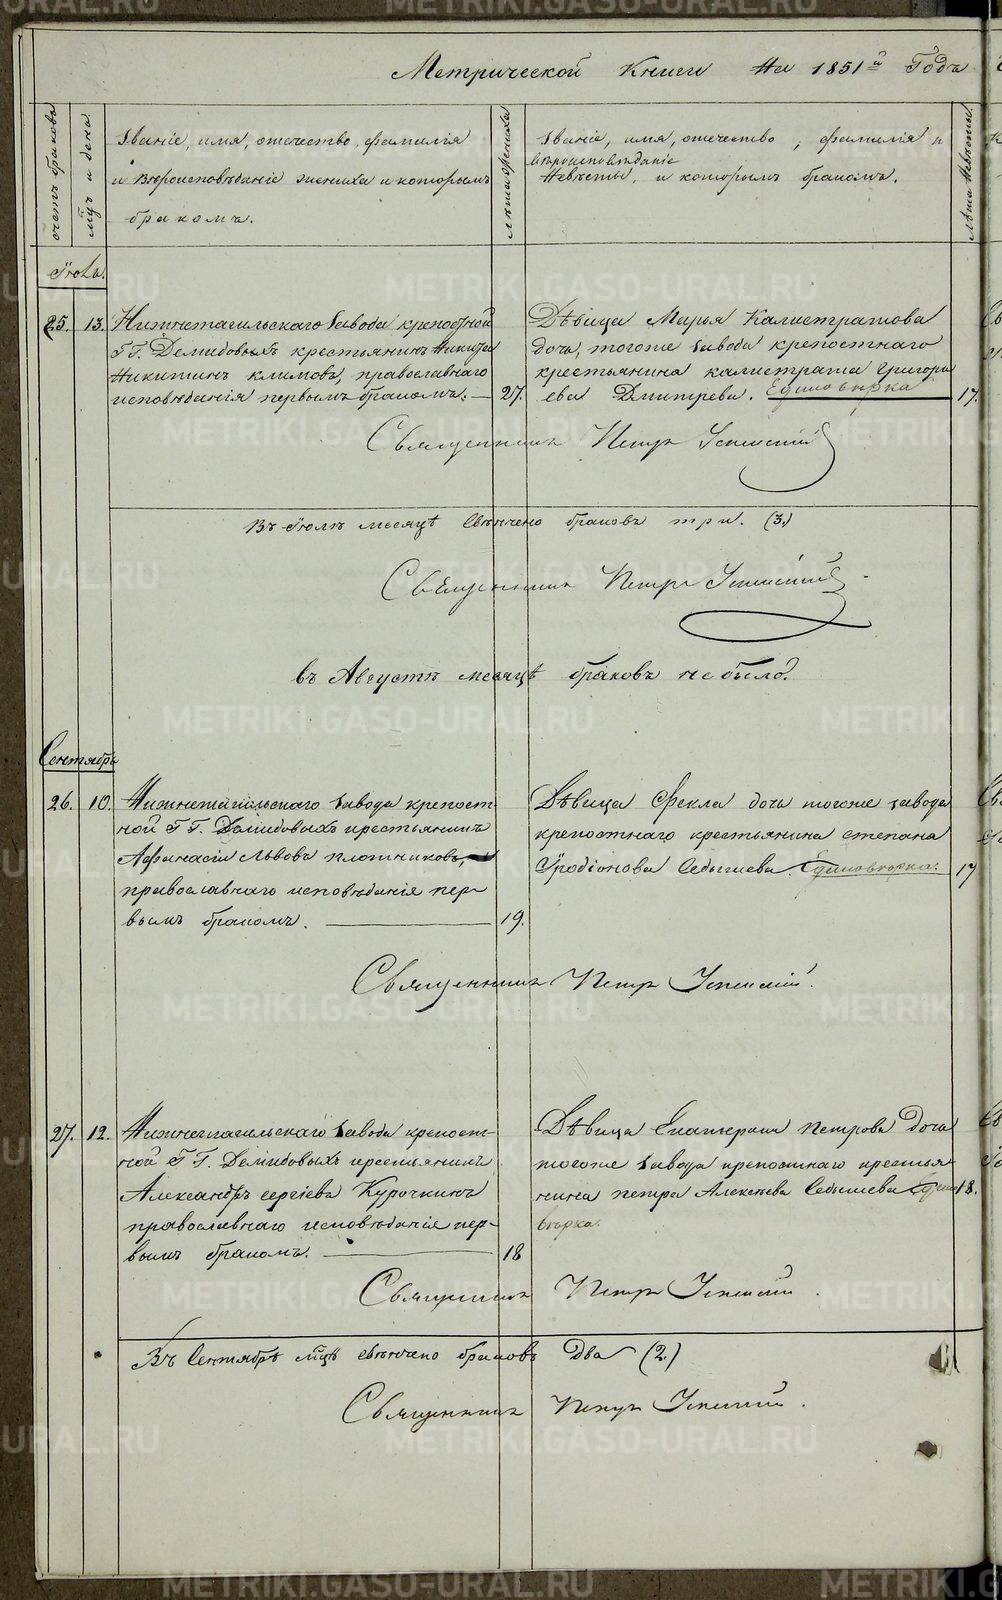 Метрической Книги На 1851й Годъ
счетъ браковъ
мцъ и день
Званіе, имя, отечество, фамилія
и Вѣроисповѣданіе жениха и которымъ
бракомъ.
лѣта жениха
Званіе, имя, отечество, фамилія и
вѣроисповѣданіе
Невѣсты, и которымъ бракомъ.
лѣта Невѣсты
Іюль.
25. 13. Нижнетагильскаго Завода крепостной
ГГ. Демидовыхъ крестьянинъ Никита
Никитинъ климовъ, православнаго
исповѣданія первымъ бракомъ. 27.
Дѣвица Марья Калистратова
дочь, тогоже Завода крепостнаго
крестьянина калистрата Григорь
ева Дмитрева. Единовѣрка 17.
Священникъ Петръ Успенскій
Въ Іюлѣ месяцѣ Свѣнчено браковъ три. (3.)
Священникъ Петръ Успенскій
въ Августѣ месяцѣ браковъ не было.
Сентябрь
26. 10. Нижнетагильскаго Завода крепост
ной ГГ. Демидовыхъ крестьянинъ
Афанасій Львовъ плотниковъ,
православнаго исповѣданія пер
вымъ бракомъ. 19.
Дѣвица Фекла дочь тогоже завода
крепостнаго крестьянина степана
Іродіонова Седышева. Единовѣрка. 17
Священникъ Петръ Успенскій.
27. 12. Нижнетагильскаго Завода крепост
ной ГГ. Демидовыхъ крестьянинъ
Александръ сергіевъ Курочкинъ
православнаго исповѣданія пер-
вымъ бракомъ. 18
Дѣвица Екатерина Петрова Дочь
тогоже Завода крепостнаго крестья
нина петра Алексѣева Седышева Едино 18.
вѣрка.
Священникъ Петръ Успенскій.
Въ Сентябрѣ мцѣ свѣнчено браковъ Два (2.)
Священникъ Петръ Успенскій.
METRIKI.GASO-URAL.RU